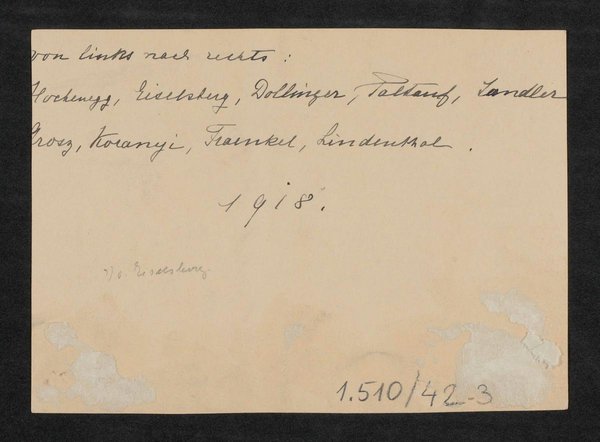 von links nach rechts :
Hochenegg, Eiselsberg, Dollinger, Paltauf, Sandler
Grosz, Koranyi, Fraenkel, Lindenthal .
1918.
v. Eiselsberg
1.510/42-3